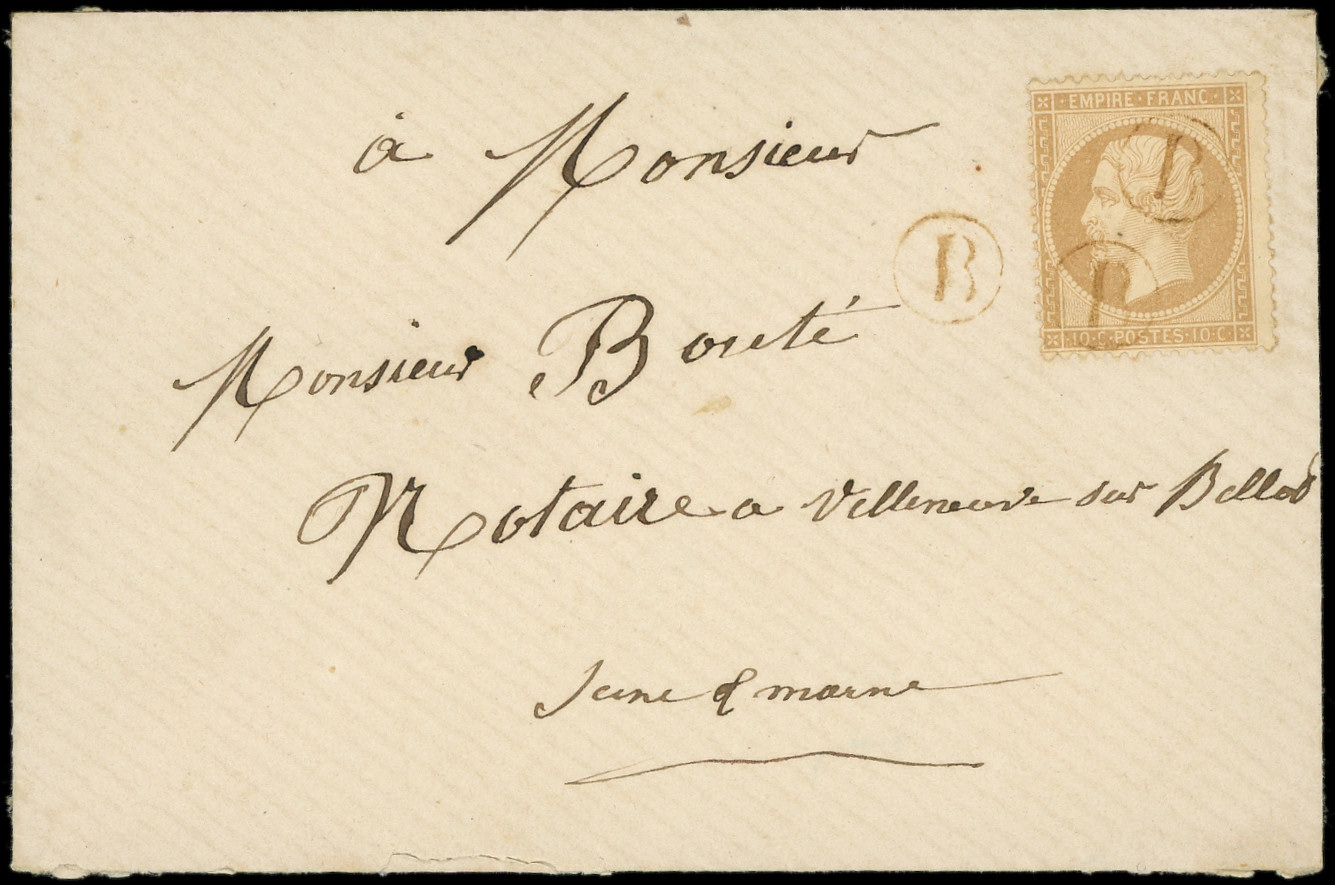 à Monsieur
Monsieur Bouté
Notaire a Villeneuve sur Bellot
Seine & marne
EMPIRE · FRANC ·
10 · C · POSTES · 10 · C ·
B
B
B